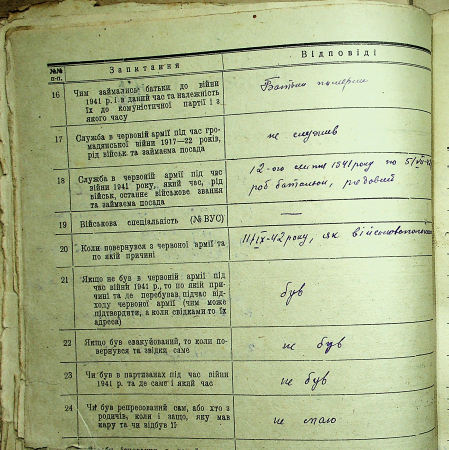 №№ п-п. Запитання Відповіді
16 Чим займались батьки до війни
1941 р. і в даний час та належність
їх до комуністичної партії і з
якого часу
Батьки померли
17 Служба в червоній армії під час гро-
мадянської війни 1917—22 років,
рід військ та займаєма посада
не служив
18 Служба в червоній армії під час
війни 1941 року, який час, рід
військ, останнє військове звання
та займаєма посада
12-ого липня 1941 року по
роб батальон, рядовий
19 Військова спеціальність (№ ВУС)
—
20 Коли повернувся з червоної армії та
по якій причині
11/IX-42 року, як військовополонений
21 Якщо не був в червоній армії під
час війни 1941 р., то по якій при-
чині та де перебував підчас від-
ходу червоної армії (чим може
підтвердити, а коли свідками то їх
адреса)
був
22 Якщо був евакуйований, то коли по-
вернувся та звідки саме
не був
23 Чи був в партизанах під час війни
1941 р. та де саме і який час
не був
24 Чи був репресований сам, або хто з
родичів, коли і защо, яку мав
кару та чи відбув її
не маю